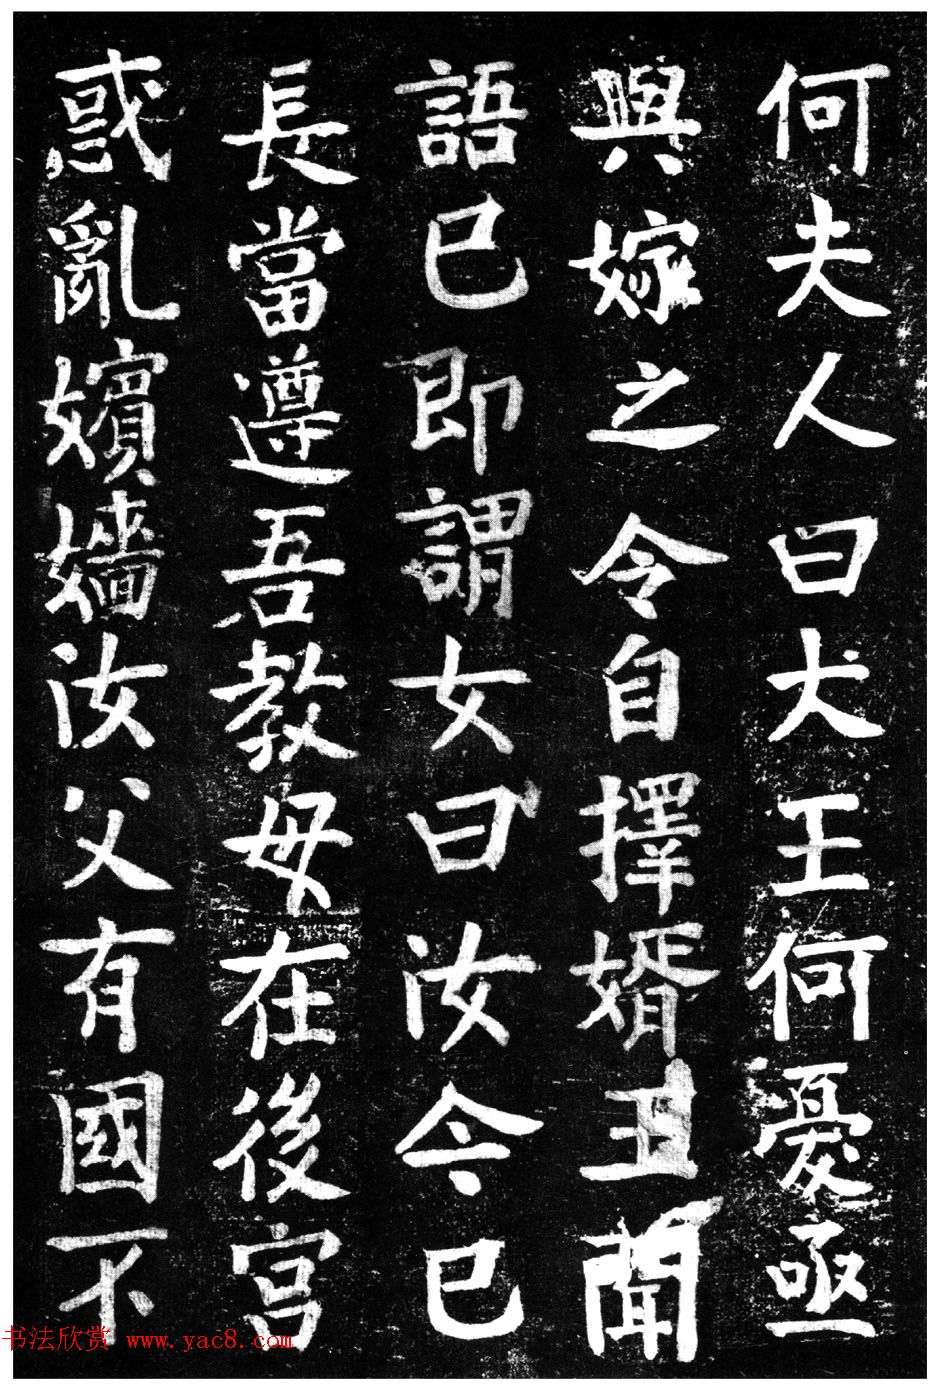 何夫人曰大王何憂亟
與嫁之令自擇婿王聞
語已即謂女曰汝今已
長當遵吾教毋在後宮
惑亂嬪嬙汝父有國不
书法欣赏 www.yac8.com